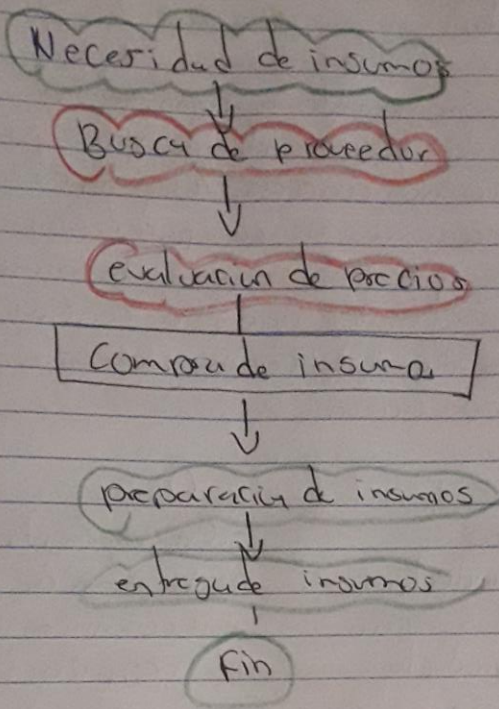 Necesidad de insumos
Busca de proveedor
evaluacion de precios
Compra de insumo
preparación de insumos
entrega de insumos
Fin